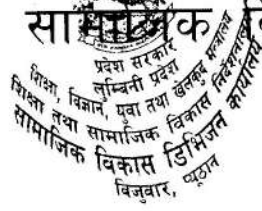 सामाजिक वि
प्रदेश सरकार
लुम्बिनी प्रदेश
शिक्षा, विज्ञान, युवा तथा खेलकुद मन्त्रालय
शिक्षा तथा सामाजिक विकास निर्देशनालय
सामाजिक विकास डिभिजन कार्यालय
बिजुवार, प्यूठान